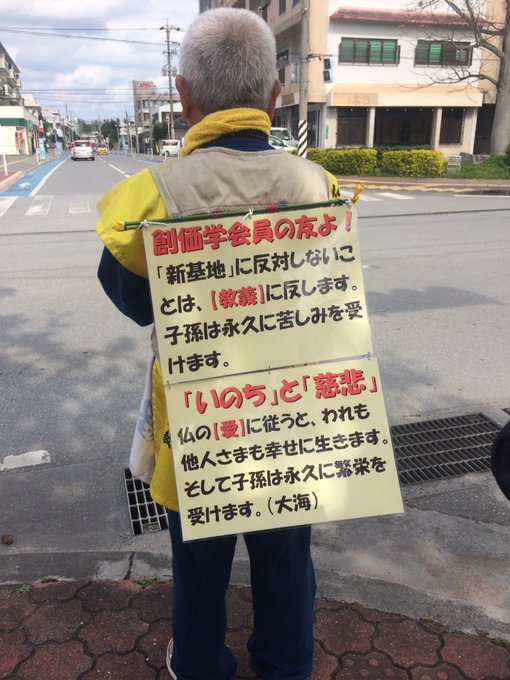 創価学会員の友よ!
「新基地」に反対しないこ
とは、【教義】に反します。
子孫は永久に苦しみを受
けます。
「いのち」と「慈悲」
仏の【愛】に従うと、われも
他人さまも幸せに生きます。
そして子孫は永久に繁栄を
受けます。(大海)